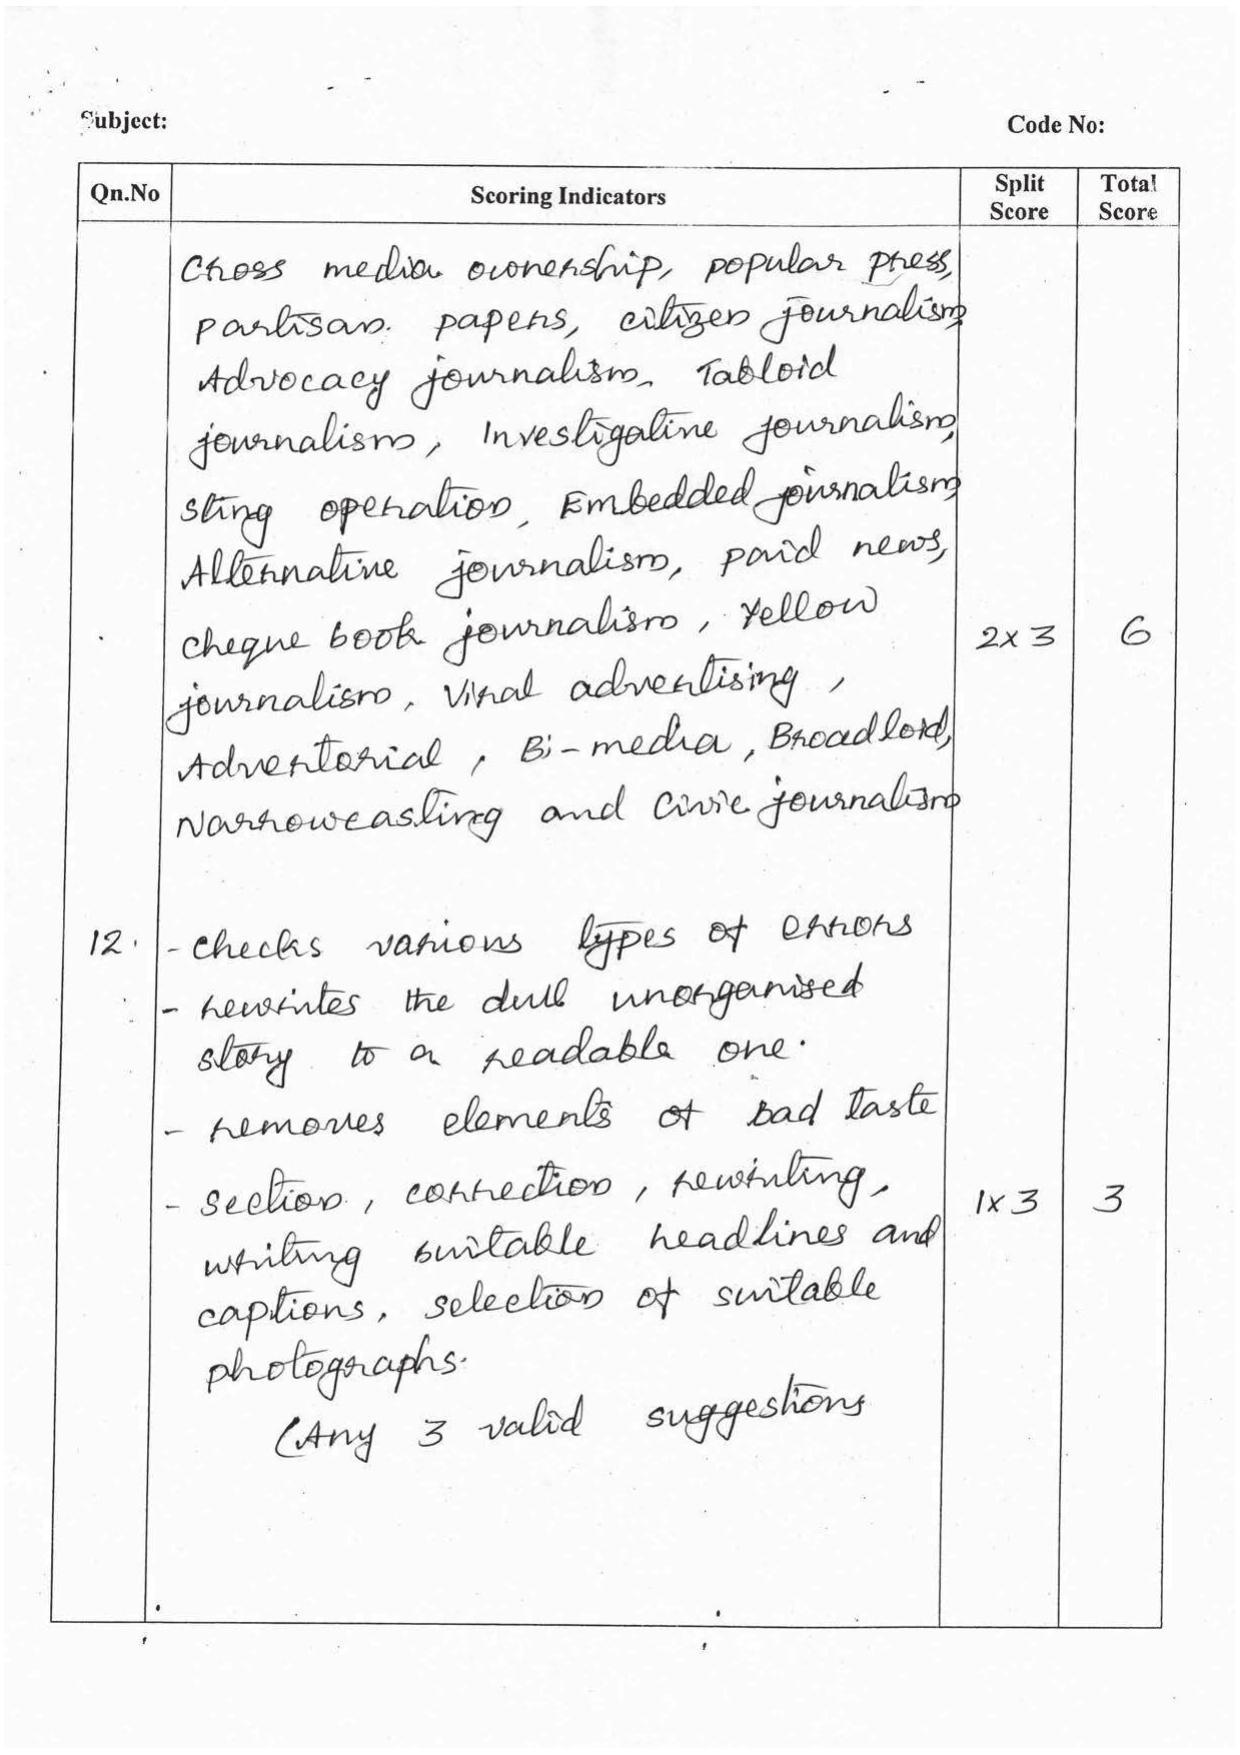 Subject:
Code No:
Qn.No
Scoring Indicators
Split Score
Total Score
Cross media ownership, popular press,
partisan papers, citizen journalism
Advocacy journalism, Tabloid
journalism, Investigative journalism,
sting operation, Embedded journalism
Alternative journalism, paid news,
cheque book journalism, Yellow
journalism, Viral advertising,
2x3
6
Advertorial, Bi-media, Broadloid,
Narrowcasting and Civic journalism
12. - checks various types of errors
- rewrites the dull unorganised
story to a readable one.
- removes elements of bad taste
- section, correction, rewriting,
1x3
3
writing suitable headlines and
captions, selection of suitable
photographs.
(Any 3 valid suggestions